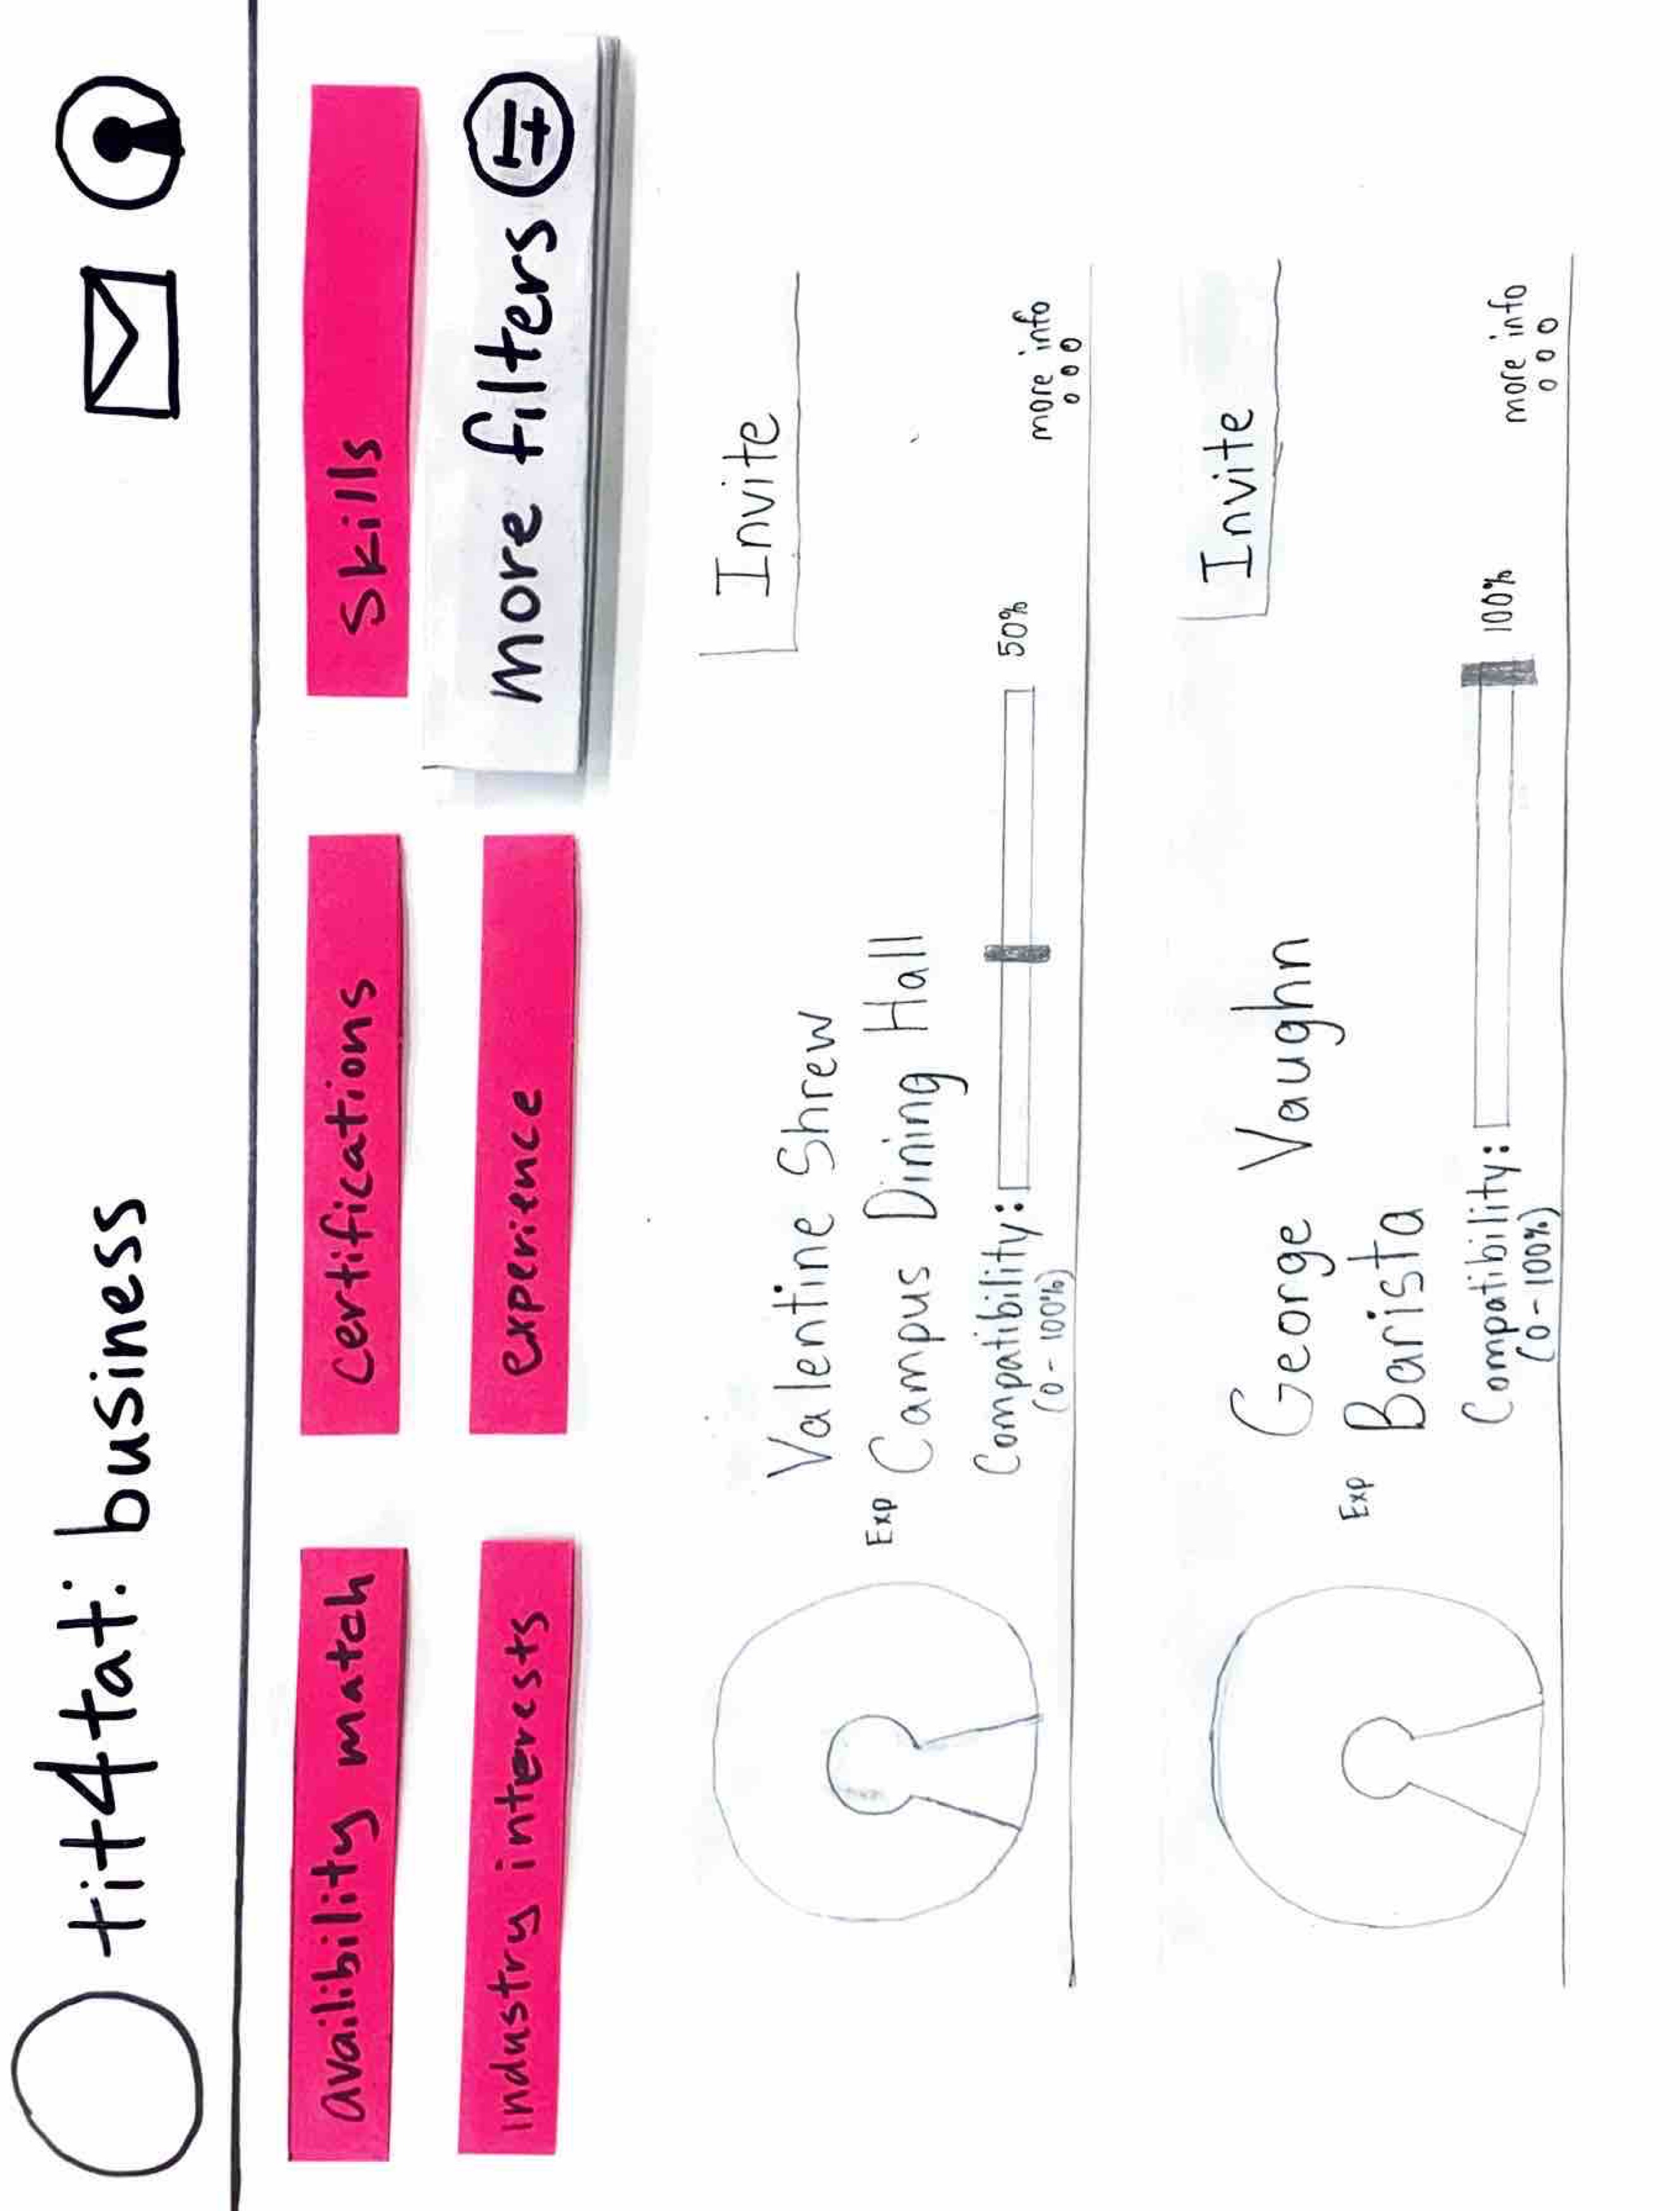 tit4tat: business
availibility match
certifications
skills
industry interests
experience
more filters
Invite
Valentine Shrew
Exp Campus Dining Hall
Compatibility: 50%
(0-100%)
more info
Invite
George Vaughn
Exp Barista
Compatibility: 100%
(0-100%)
more info